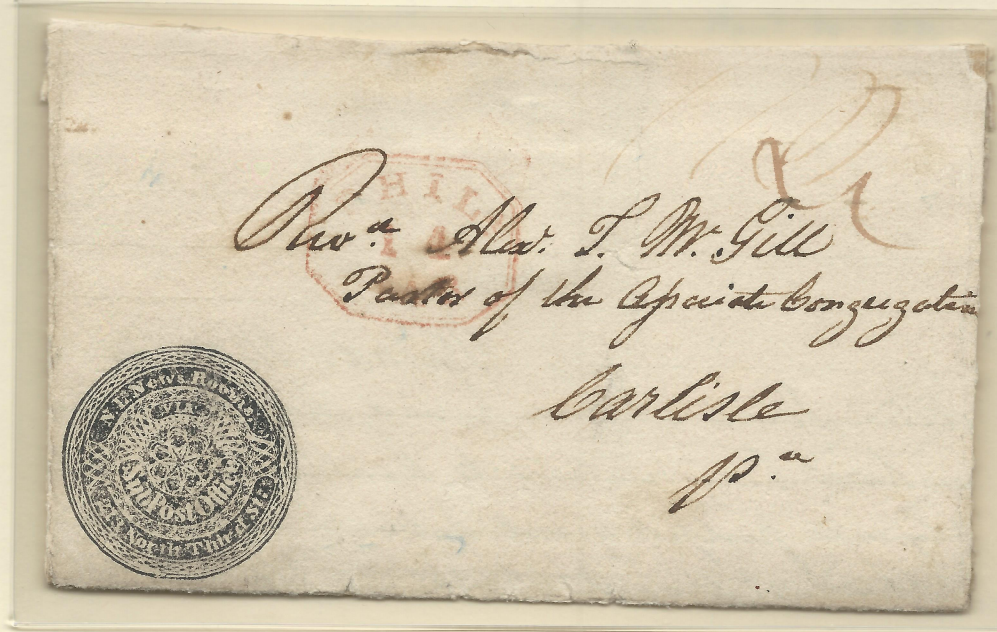 PHIL
14
Revd. Alexr. T. McGill
Pastor of the Associate Congregation
Carlisle
Pa
N.E. News Room
VIA
Sub Post Office
North Third St.